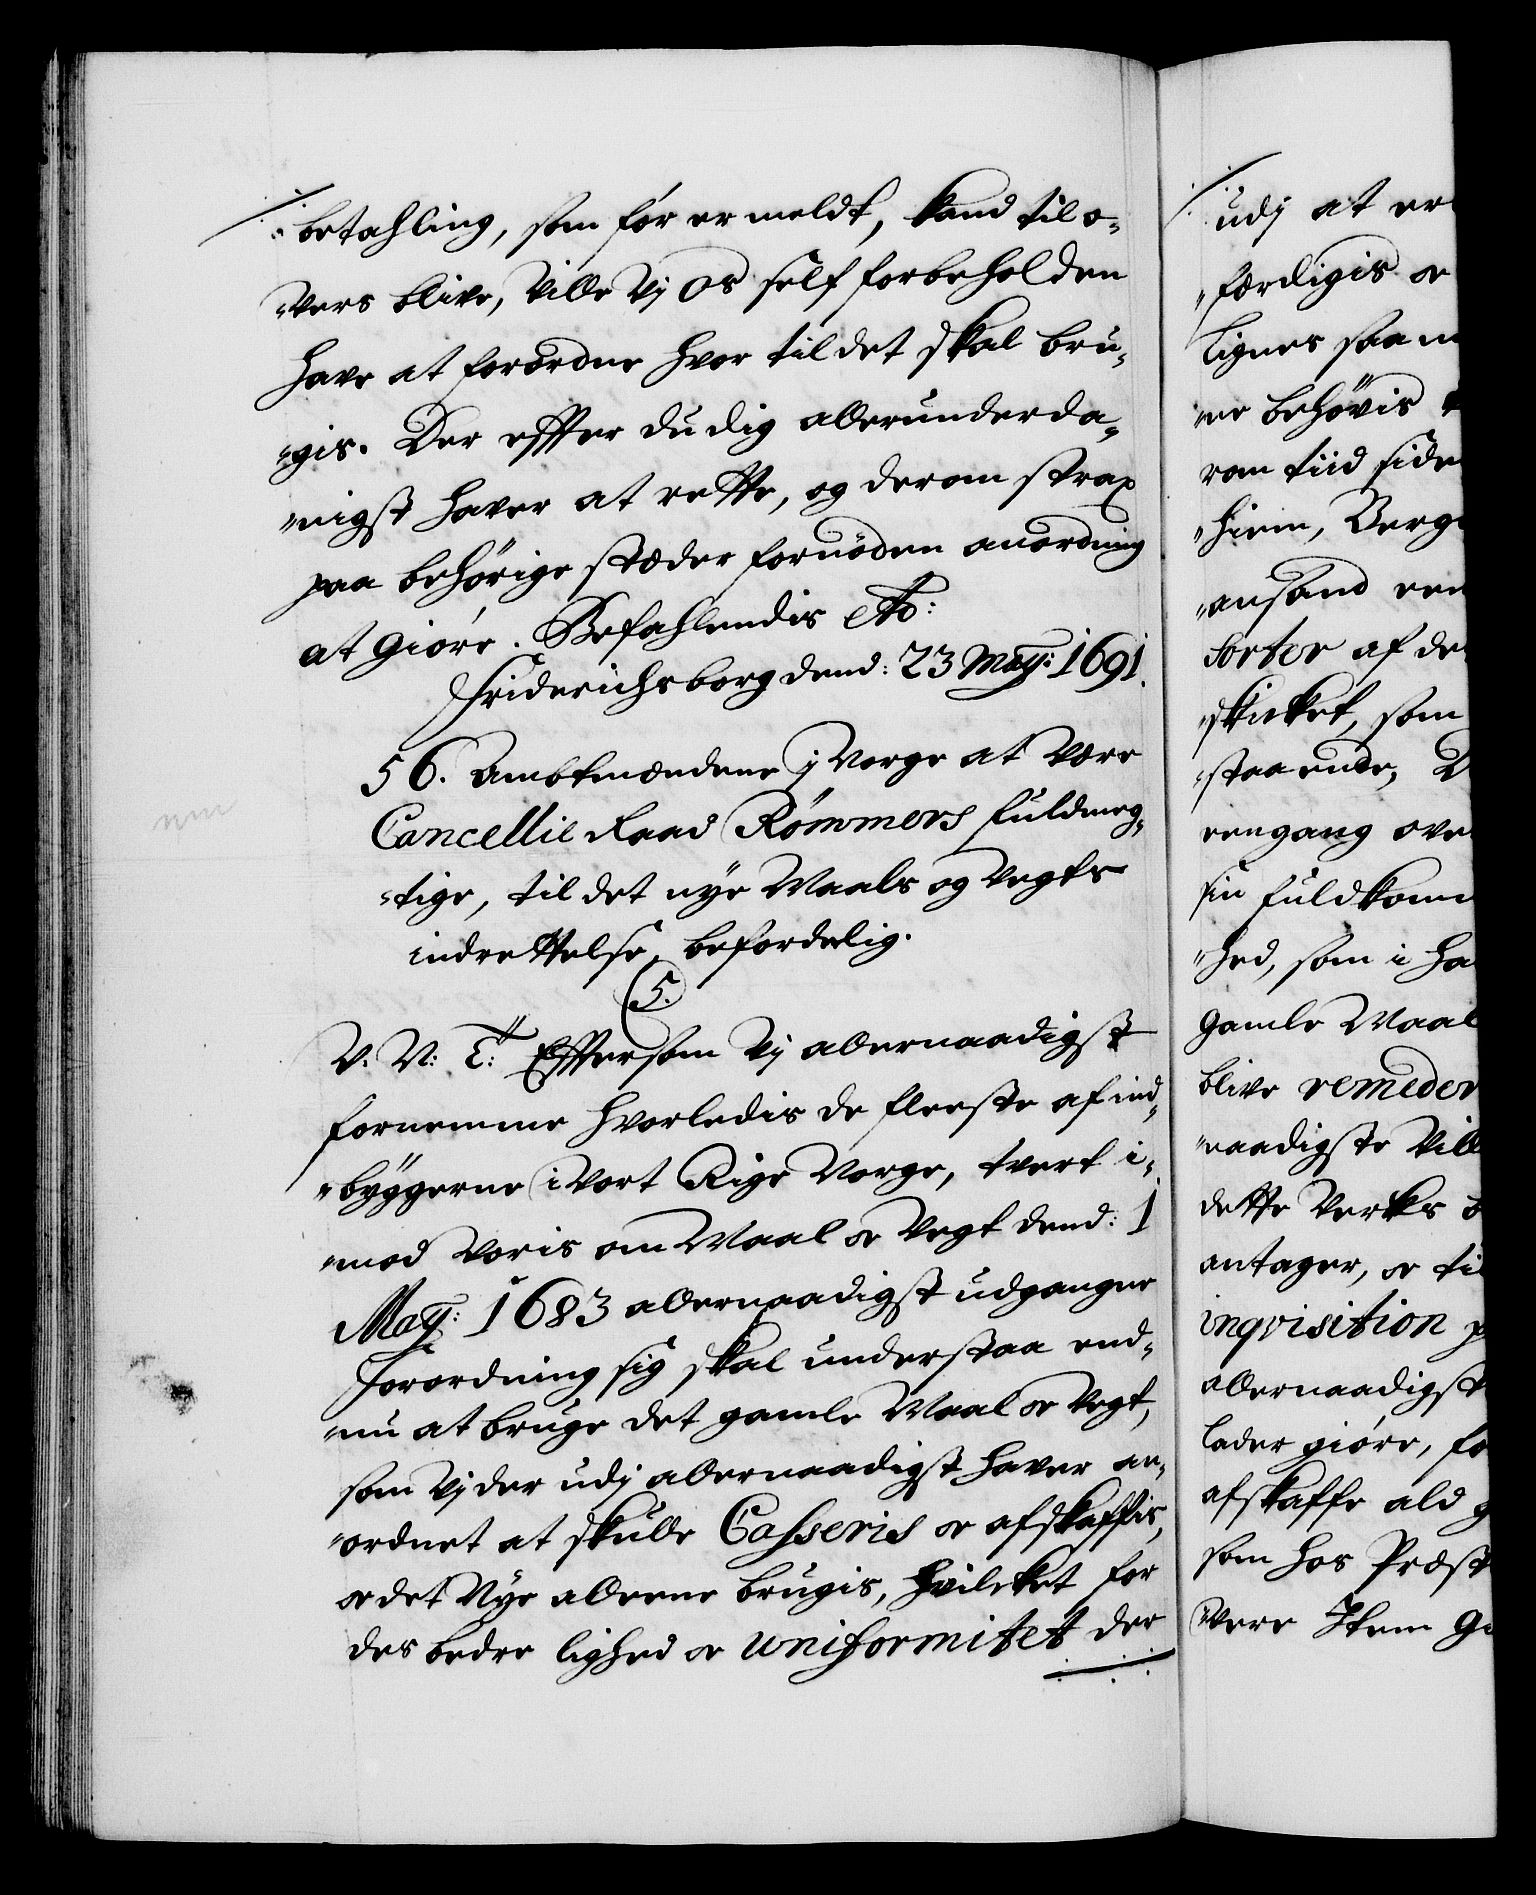 betahling, som før er meldt, kand til o-
vers blive, Ville Vj Os self forbeholden
have at forordne hvor til det skal bru-
gis. Der effter du dig allerunderda-
nigst haver at rette, og derom strax
paa behørige stæder fornöden anordning
at Giöre. Befahlendis etc:
Friderichsborg dend: 23 Maÿ: 1691.
56. Ambtmændene j Norge at være
Cancellie Raad Römmers fuldmeg-
tige, til det nÿe Maals og Vegts
indrettelse, beforderlig.
5.
V. N: T: Effter som Vj allernaadigst
fornemme hvorledis de fleeste af ind-
bÿggerne i Vort Rige Norge, tvert i-
mod Voris om Maal or Vegt dend: 1
Maÿ: 1683 allernaadigst udgangne
Forordning sig skal understaa end-
nu at bruge det gamle Maal or Vegt,
som Vj der udj allernaadigst haver an-
ordnet at skulle Casseris or afskaffis,
or det Nÿe alleene brugis, hvilcket for
des bedre lighed or uniformitet der
udj at er
færdigis or
lignes saa m
er behövis
rom tiid side
hiem, Berg
ansand een
sorter af de
skicket, som
staaende, D
eengang ove
sin fuldkom
hed, som i ha
gamle Maal
blive remeder
naadigste Vill
dette Verks b
antager, or til
inqvisition p
allernaadigst
lader giöre, fo
afskaffe ald g
som hos Præst
Vere Item G